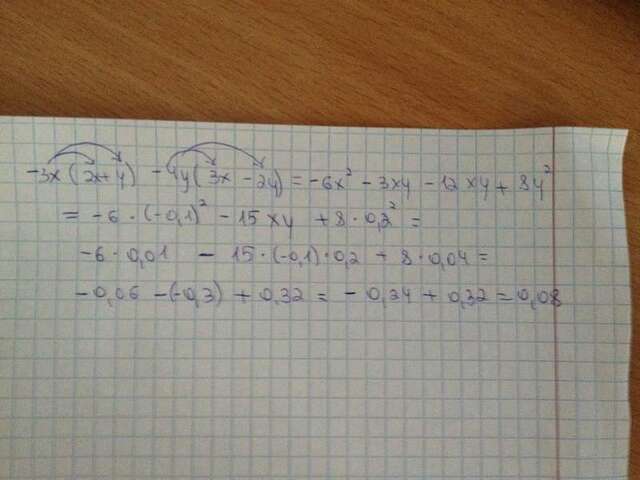 -3x (2x+y) -4y(3x -2y) = -6x² - 3xy - 12xy + 8y²
= -6·(-0,1)² - 15xy + 8·0,2² =
-6·0,01 - 15·(-0,1)·0,2 + 8·0,04 =
-0,06 -(-0,3) + 0,32 = -0,24 + 0,32 = 0,08